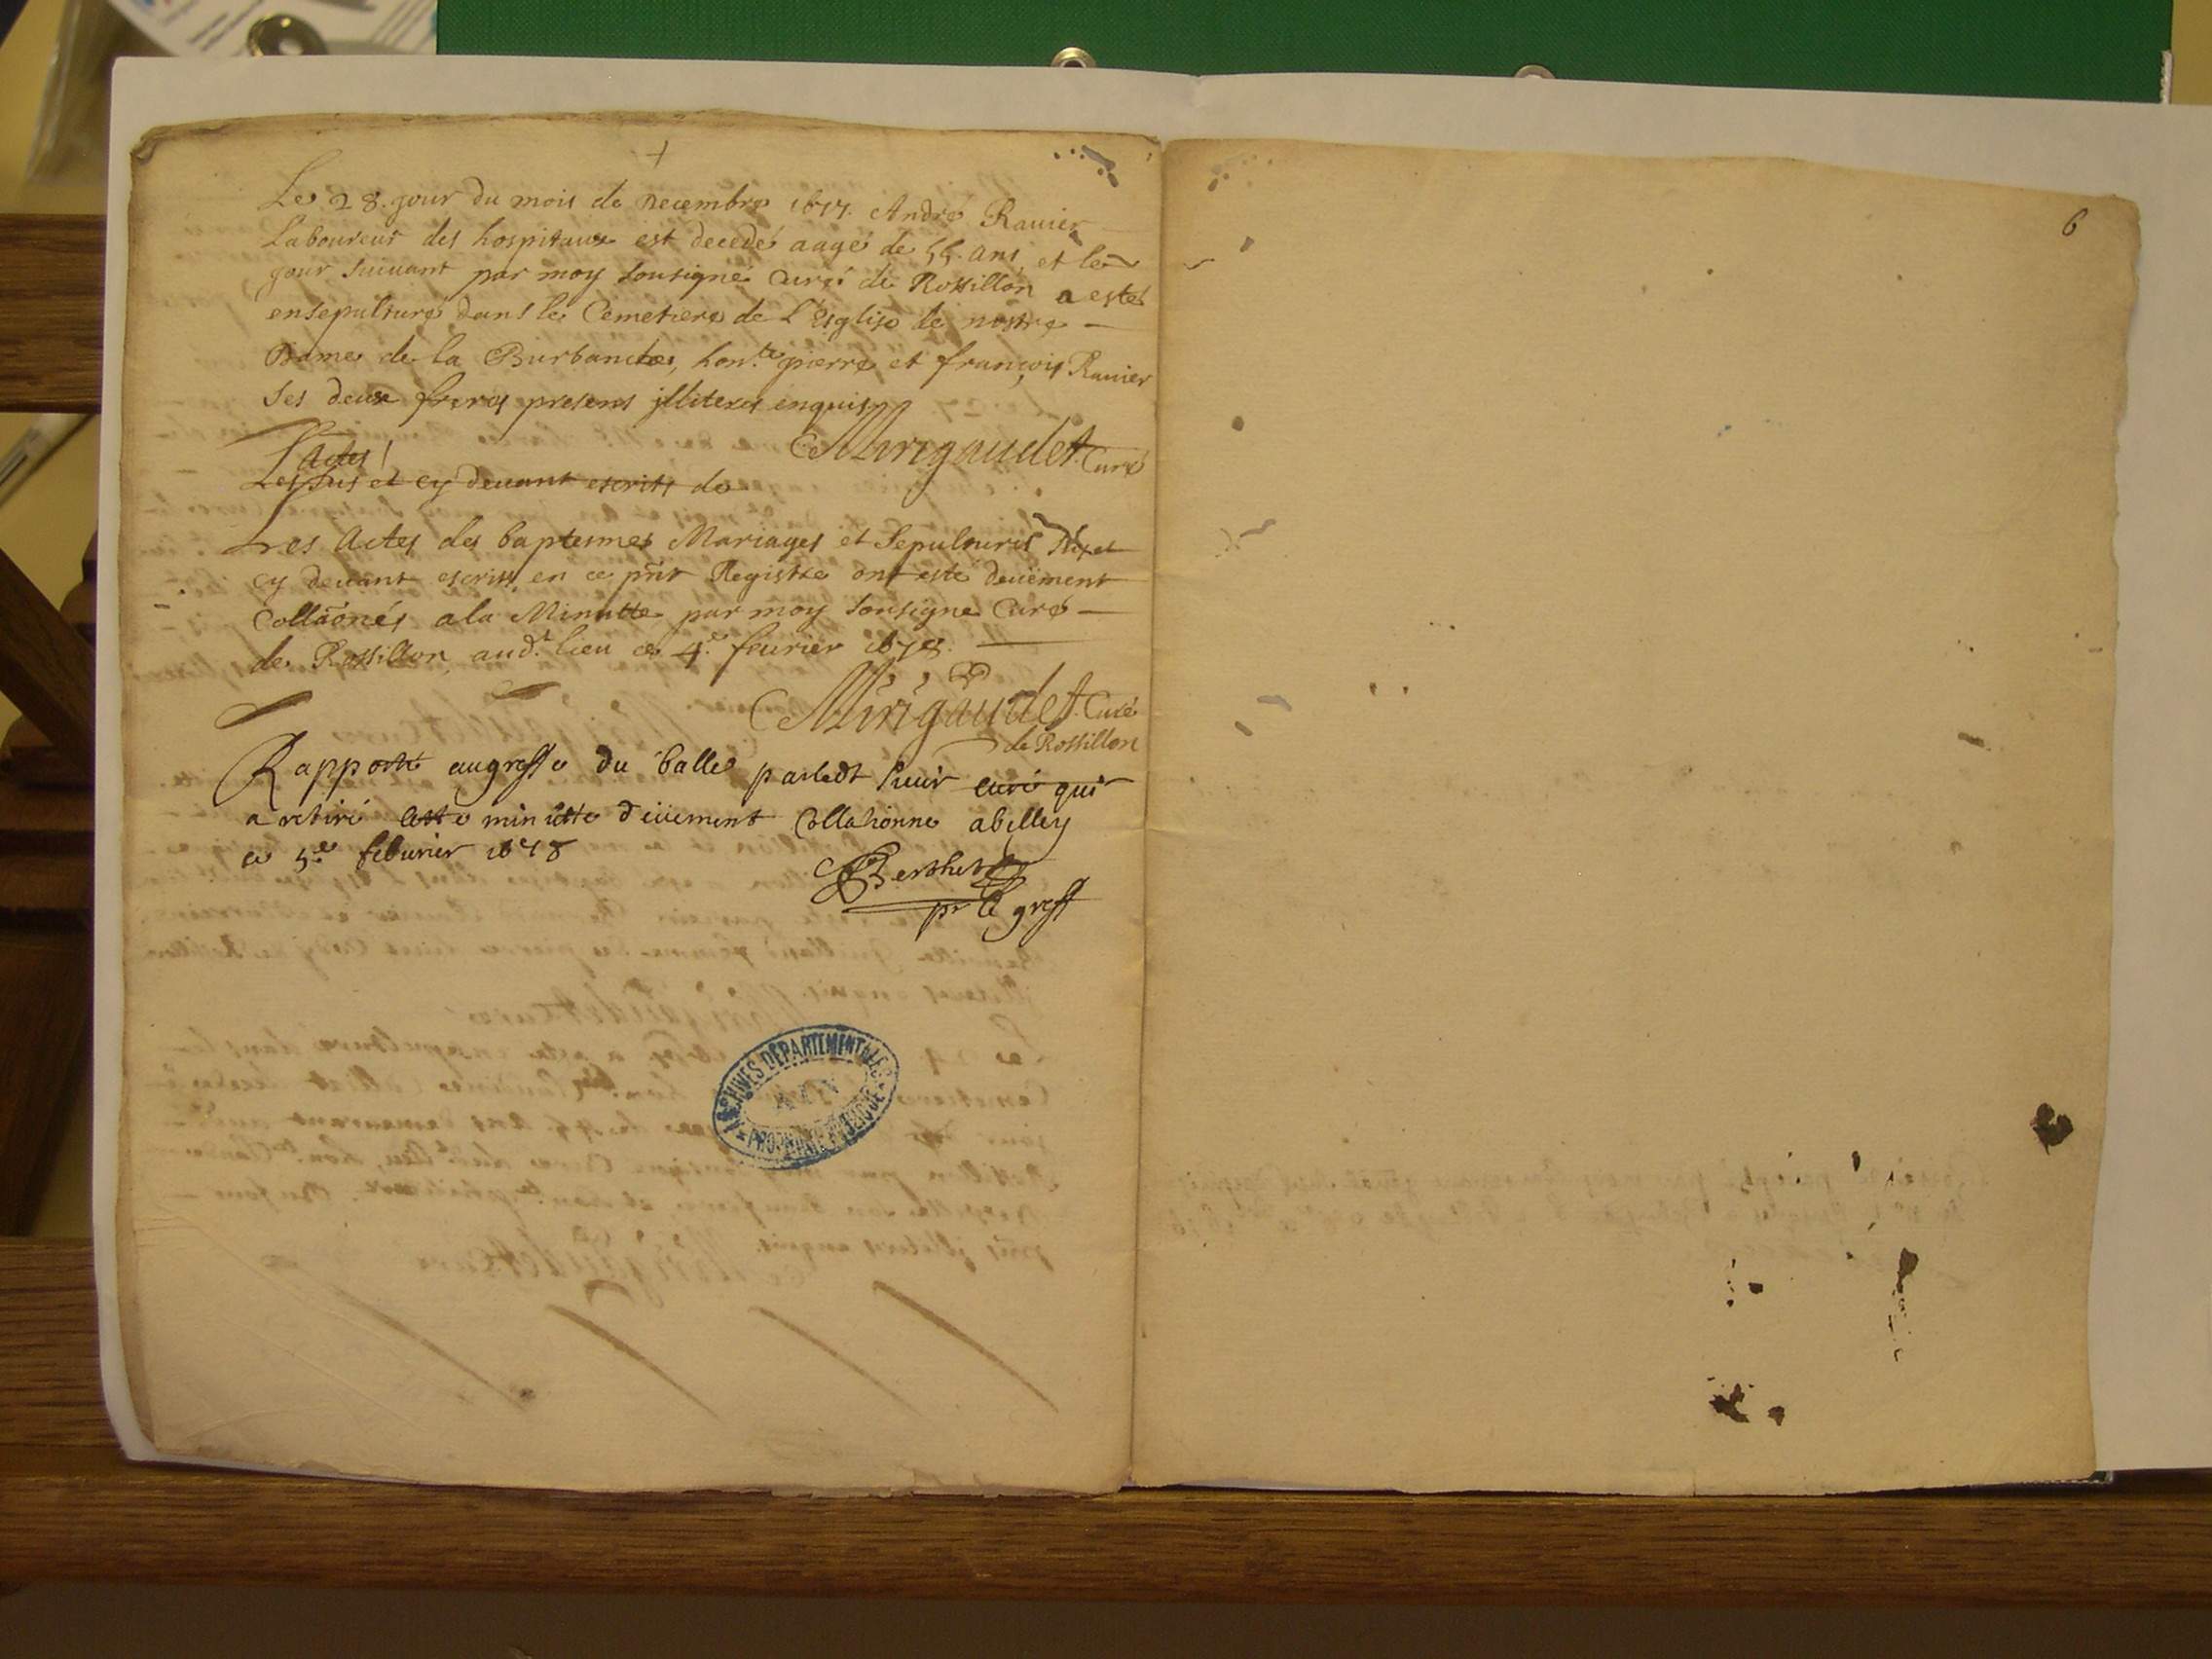 Le 28. jour du mois de Decembre 1677. André Ravier
Laboureur des hospitaux est decedé aagé de 55. ans, et le
jour suivant par moy sousigné Curé de Rossillon a esté
ensepulturé dans le Cemetiere de l'Esglise de nostre
Dame de la Burbanche, hon.te pierre et françois Ravier
ses deux freres presens illiteres enquis
Mirigaudet Curé
Actes
Les sus et cy devant escrits de
Les Actes des baptesmes Mariages et Sepultures sus et
cy devant escrits en ce pñt Registre ont esté deüement
Collaõnés a la Minutte par moy sousigné Curé
de Rossillon aud.t lieu ce 4.e fevrier 1678.
Mirigaudet Curé
de Rossillon
Rapporté au greffe du balle par ledt sieur curé qui
a retiré cette minutte deüement Collationne a belley
ce 5.e febvrier 1678
Berthet
pr le greff
ARCHIVES DÉPARTEMENTALES
AIN
PROPRIÉTÉ PUBLIQUE
6